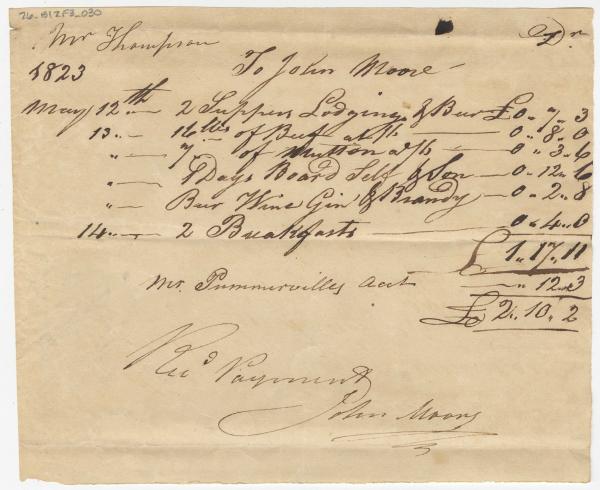 26-B12F3-030
Mr Thompson Dr
1823 To John Moore
May 12th 2 Suppers Lodgings & Beer £0,, 7,, 3
13 ,, 16 lbs of Beef at /6 0,, 8,, 0
,, 7 ,, of Mutton at /6 0,, 3,, 6
,, Days Board Self & Son 0,, 12,, 6
,, Beer Wine Gin & Brandy 0,, 2,, 8
14 ,, 2 Breakfasts 0,, 4,, 0
£ 1,, 17,, 11
Mr. Pummervilles Acct ,, 12,, 3
£ 2,, 10,, 2
Recd Payment
John Moore